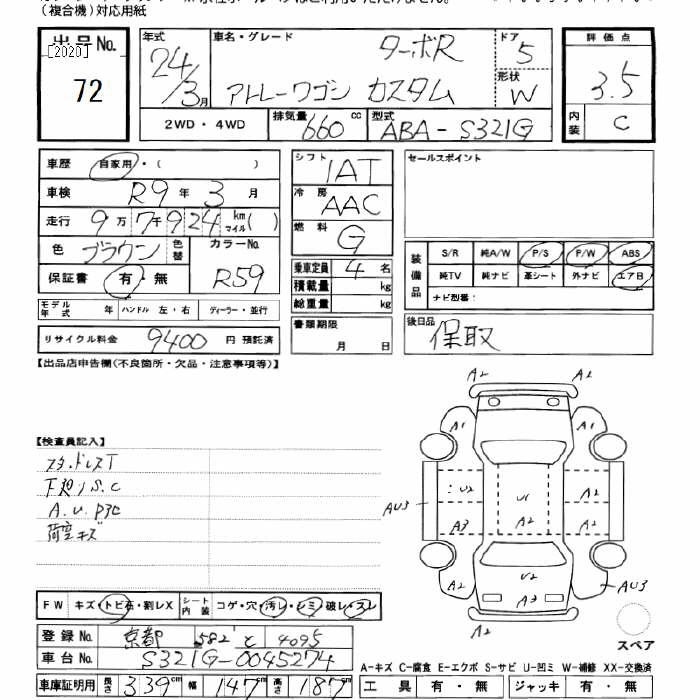 (複合機)対応用紙
出品No.
[2020]
72
年式 24/3月
車名・グレード ターボR
アトレーワゴン カスタム
ドア 5
形状 W
評価点 3.5
内装 C
2WD・4WD
排気量 660 cc
型式 ABA-S321G
車歴 自家用・( )
車検 R9年 3月
走行 9万7千924 km マイル( )
色 ブラウン 色替
カラーNo. R59
保証書 有・無
モデル年式 年 ハンドル 左・右 ディーラー・並行
リサイクル料金 9400 円 預託済
シフト IAT
冷房 AAC
燃料 G
乗車定員 4 名
積載量 kg
総重量 kg
書類期限 月 日
セールスポイント
装備品 S/R 純A/W P/S P/W ABS
純TV 純ナビ 革シート 外ナビ エアB
ナビ型番:
後日品 保取
【出品店申告欄(不良箇所・欠品・注意事項等)】
【検査員記入】
スタッドレスT
下廻りS.C
A.U P3C
荷室キズ
A2 A2
A1 A1
U2 U1 A2
AU3 A3 A2 A2
U2
A2 A3 AU3
A2
スペア
FW キズ・トビ石・割レX シート内装 コゲ・穴・汚レ・シミ・破レ・スレ
登録No. 京都 582 と 4095
車台No. S321G-0045274
A-キズ C-腐食 E-エクボ S-サビ U-凹ミ W-補修 XX-交換済
車庫証明用 長さ 339cm 幅 147cm 高さ 187cm
工具 有・無 ジャッキ 有・無